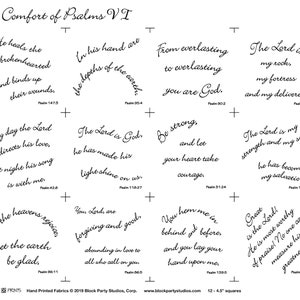 Comfort of Psalms VI
He heals the
brokenhearted
and binds up
their wounds.
Psalm 147:3
In his hand are
the depths of the earth.
Psalm 95:4
From everlasting
to everlasting
you are God.
Psalm 90:2
The Lord is
my rock,
my fortress
and my deliverer
day the Lord
directs his love,
at night his song
is with me.
Psalm 42:8
The Lord is God,
he has made his
light shine on us.
Psalm 118:27
Be strong,
and let
your heart take
courage.
Psalm 31:24
The Lord is my
strength and my s
he has becom
my salvatio
the heavens rejoice,
let the earth
be glad.
Psalm 96:11
You, Lord, are
forgiving and good,
abounding in love to
all who call to you.
Psalm 86:5
You hem me in,
behind and before,
and you lay your
hand upon me.
Psalm 139:5
Great
is the Lord!
He is most worthy
of praise! No one
can measure
his greatness.
PRINTS Hand Printed Fabrics © 2019 Block Party Studios, Corp. www.blockpartystudios.com 12 - 4.5" squares